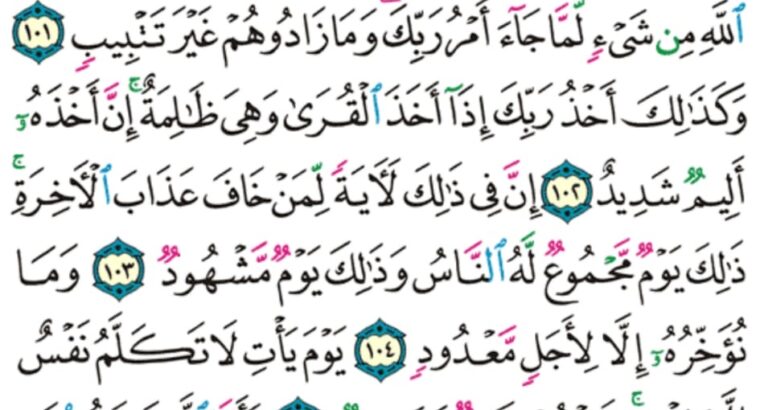 ٱللَّهِ مِن شَىْءٍ لَّمَّا جَآءَ أَمْرُ رَبِّكَ وَمَا زَادُوهُمْ غَيْرَ تَتْبِيبٍ ١٠١
وَكَذَٰلِكَ أَخْذُ رَبِّكَ إِذَآ أَخَذَ ٱلْقُرَىٰ وَهِىَ ظَـٰلِمَةٌ ۚ إِنَّ أَخْذَهُۥٓ
أَلِيمٌ شَدِيدٌ ١٠٢ إِنَّ فِى ذَٰلِكَ لَـَٔايَةً لِّمَنْ خَافَ عَذَابَ ٱلْـَٔاخِرَةِ ۚ
ذَٰلِكَ يَوْمٌ مَّجْمُوعٌ لَّهُ ٱلنَّاسُ وَذَٰلِكَ يَوْمٌ مَّشْهُودٌ ١٠٣ وَمَا
نُؤَخِّرُهُۥٓ إِلَّا لِأَجَلٍ مَّعْدُودٍ ١٠٤ يَوْمَ يَأْتِ لَا تَكَلَّمُ نَفْسٌ